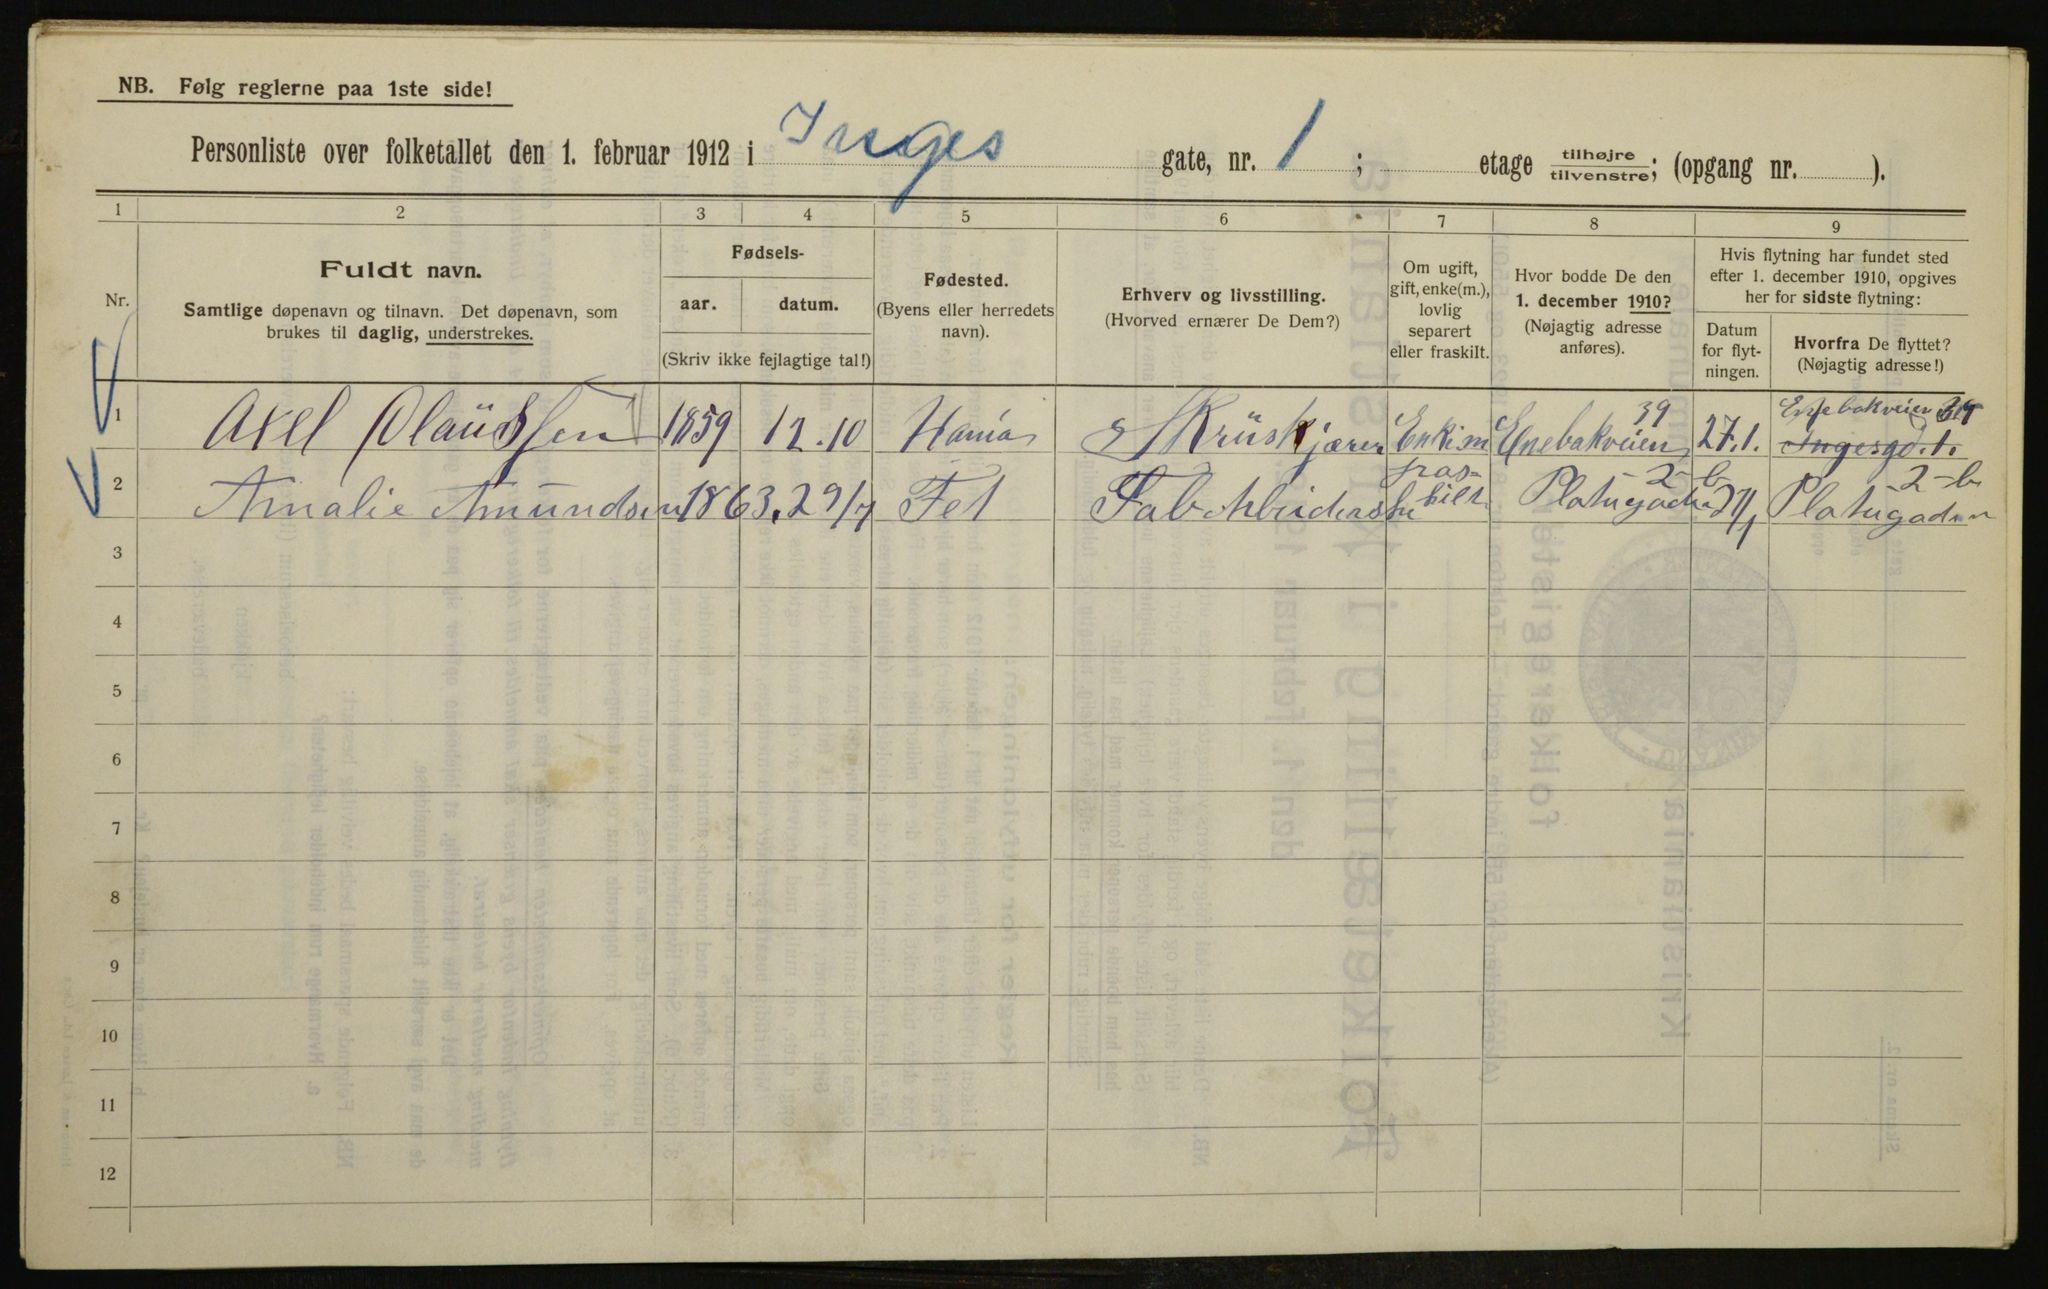 NB. Følg reglerne paa 1ste side!
Personliste over folketallet den 1. februar 1912 i Inges gate, nr. 1 ; etage tilhøjre tilvenstre; (opgang nr. ).
1 2 3 4 5 6 7 8 9
Nr.
Fuldt navn.
Samtlige døpenavn og tilnavn. Det døpenavn, som
brukes til daglig, understrekes.
Fødsels-
aar. datum.
(Skriv ikke fejlagtige tal!)
Fødested.
(Byens eller herredets
navn).
Erhverv og livsstilling.
(Hvorved ernærer De Dem?)
Om ugift,
gift, enke(m.),
lovlig
separert
eller fraskilt.
Hvor bodde De den
1. december 1910?
(Nøjagtig adresse
anføres).
Hvis flytning har fundet sted
efter 1. december 1910, opgives
her for sidste flytning:
Datum
for flyt-
ningen.
Hvorfra De flyttet?
(Nøjagtig adresse!)
1 Axel Olaüssen 1859 12.10 Skrüskjærer Enkem Enebakveien 39 27.1. Enebakveien 39
Ingesgd. 1.
2 Amalie Amundsen 1863. 29/7 Fet Fab Arbiderske fraskilt Platugaden 2-b 27/1 Platugaden 2-b
3
4
5
6
7
8
9
10
11
12